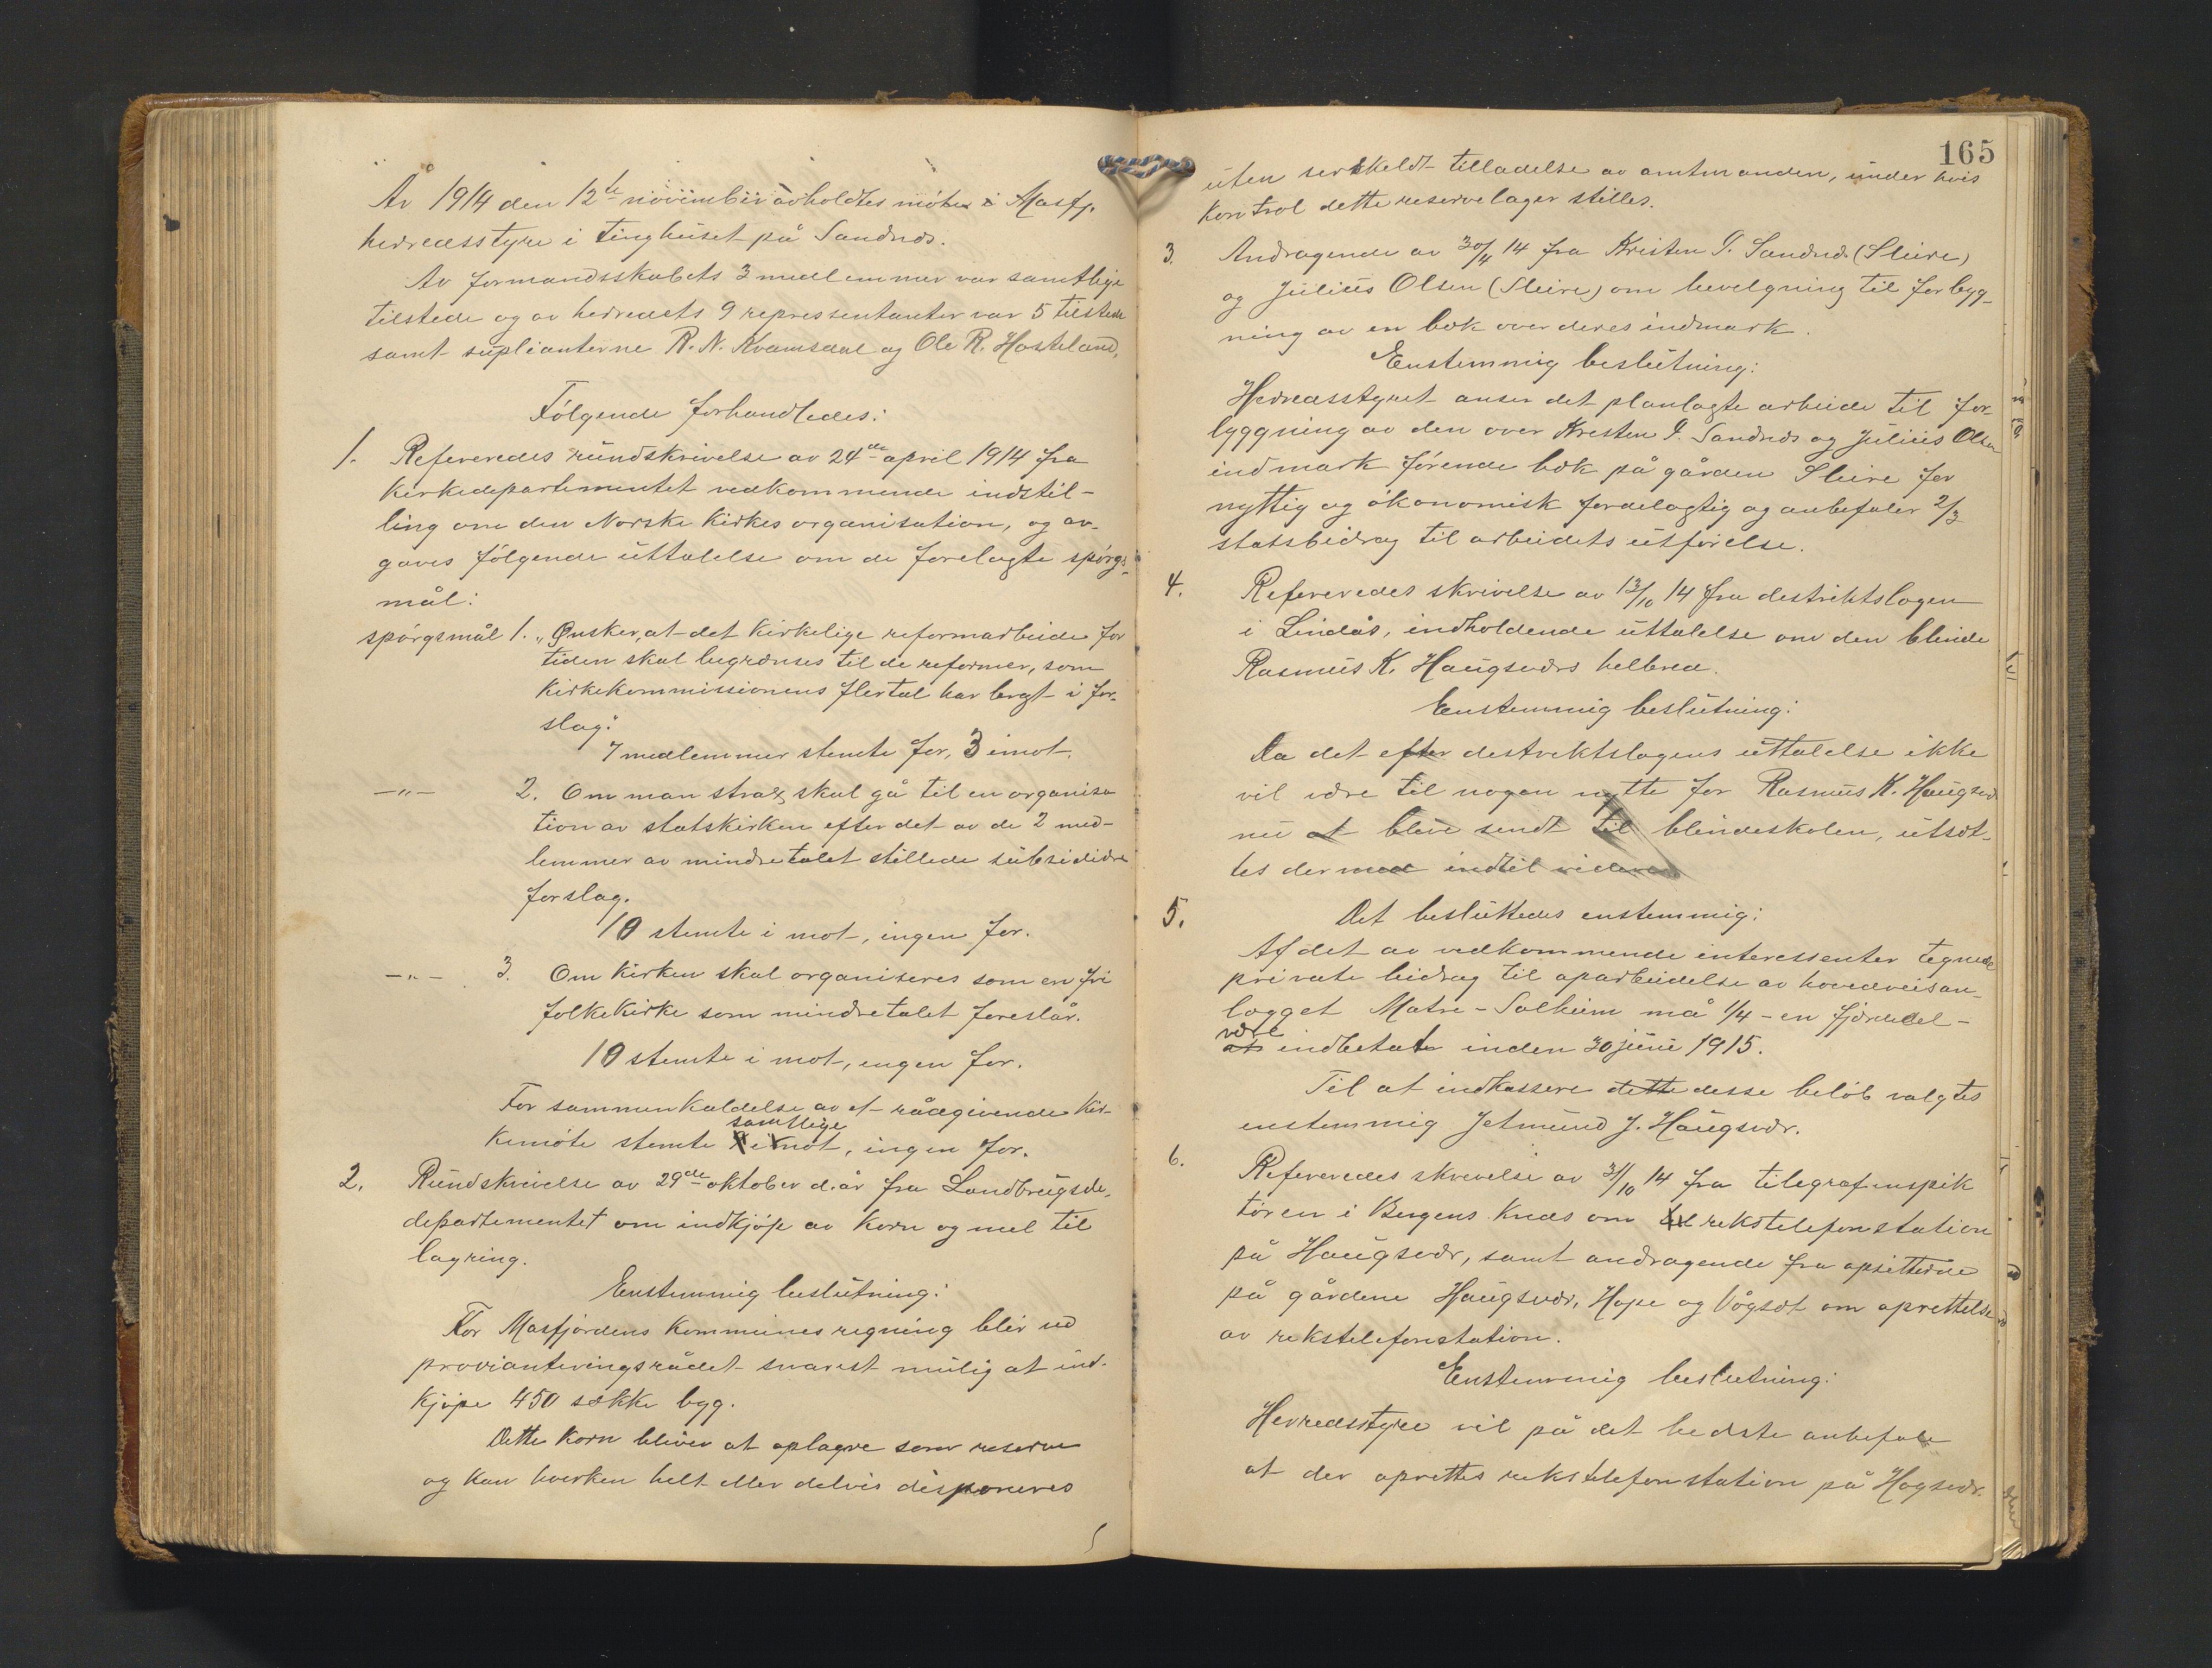 År 1914 den 12te november avholdtes møte i Masfj.
herredsstyre i tinghuset på Sandnæs.
Av formandsskabets 3 medlemmer var samtlige
tilstede og av herredets 9 repressentanter var 5 tilstede
samt suplianterne R. N. Kvamsdal og Ole R. Hosteland.
Følgende forhandledes:
1. Refereredes rundskrivelse av 24de april 1914 fra
kirkedepartementet vedkommende indstil-
ling om den Norske kirkes organisation, og av-
gaves følgende uttalelse om de forelagte spørgs-
mål:
spørgsmål 1. „Ønskes, at det kirkelige reformarbeide for
tiden skal begrænses til de reformer, som
kirkekommissionens flertal har bragt i for-
slag."
7 medlemmer stemte for, 3 imot.
—„— 2. Om man strax skal gå til en organisa
tion av statskirken efter det av de 2 med-
lemmer av mindretalet stillede subsidiære
forslag.
10 stemte i mot, ingen for.
—„— 3. Om kirken skal organiseres som en fri
folkekirke som mindretalet foreslår.
10 stemte i mot, ingen for.
For sammenkaldelse av et rådgivende kir-
samtlige
kemøte stemte imot, ingen for.
2. Rundskrivelse av 29de oktober d. år fra Landbrugsde-
departementet om indkjøp av korn og mel til
lagring.
Enstemmig beslutning:
For Masfjordens kommunes regning blir ved
provianteringsrådet snarest mulig at ind-
kjøpe 450 sække byg.
Dette korn bliver at oplagre som reserve
og kan hverken helt eller delvis disponeres
165
uten serskeldt tilladelse av amtmanden, under hvis
kontrol dette reservelager stilles.
3. Andragende av 30/4 14 fra Kristen P. Sandnæs (Sleire)
og Julius Olsen (Sleire) om bevelgning til forbyg-
ning av en bæk over deres indmark.
Enstemmig beslutning:
Herredsstyret anser det planlagte arbeide til for-
byggning av den over Kresten P. Sandnæs og Julius Olsen
indmark førende bæk på gården Sleire for
nyttig og økonomisk fordelagtig og anbefaler 2/3
statsbidrag til arbeidets utførelse.
4. Refereredes skrivelse av 13/10 14 fra destriktslægen
i Lindås, indholdende uttalelse om den blinde
Rasmus K. Haugsværs helbred.
Enstemmig beslutning:
Da det efter destrektslægens uttalelse ikke
vil være til nogen nytte for Rasmus K. Haugsvær
nu at blive sendt til blindeskolen, utsæt-
tes dermed indtil videre
5. Det besluttedes enstemmig:
Af det av vedkommende interessenter tegnede
private bidrag til oparbeidelse av hovedveisan-
lægget Matre - Solheim må 1/4 - en fjerdedel -
være
at indbetalt inden 30 juni 1915.
Til at indkassere dette desse beløb valgtes
enstemmig Jetmund J. Haugsvær.
6. Refereredes skrevelse av 31/10 14 fra telegrafinspek
tøren i Bergens kreds om til rekstelefonstation
på Haugsvær, samt andragende fra opsitterne
på gårdene Haugsvær, Hope og Vågsæt om oprettelse
av rekstelefonstation.
Enstemmig beslutning:
Herredsstyre vil på det bedste anbefale
at der oprettes rekstelefonstation på Hogsvær.